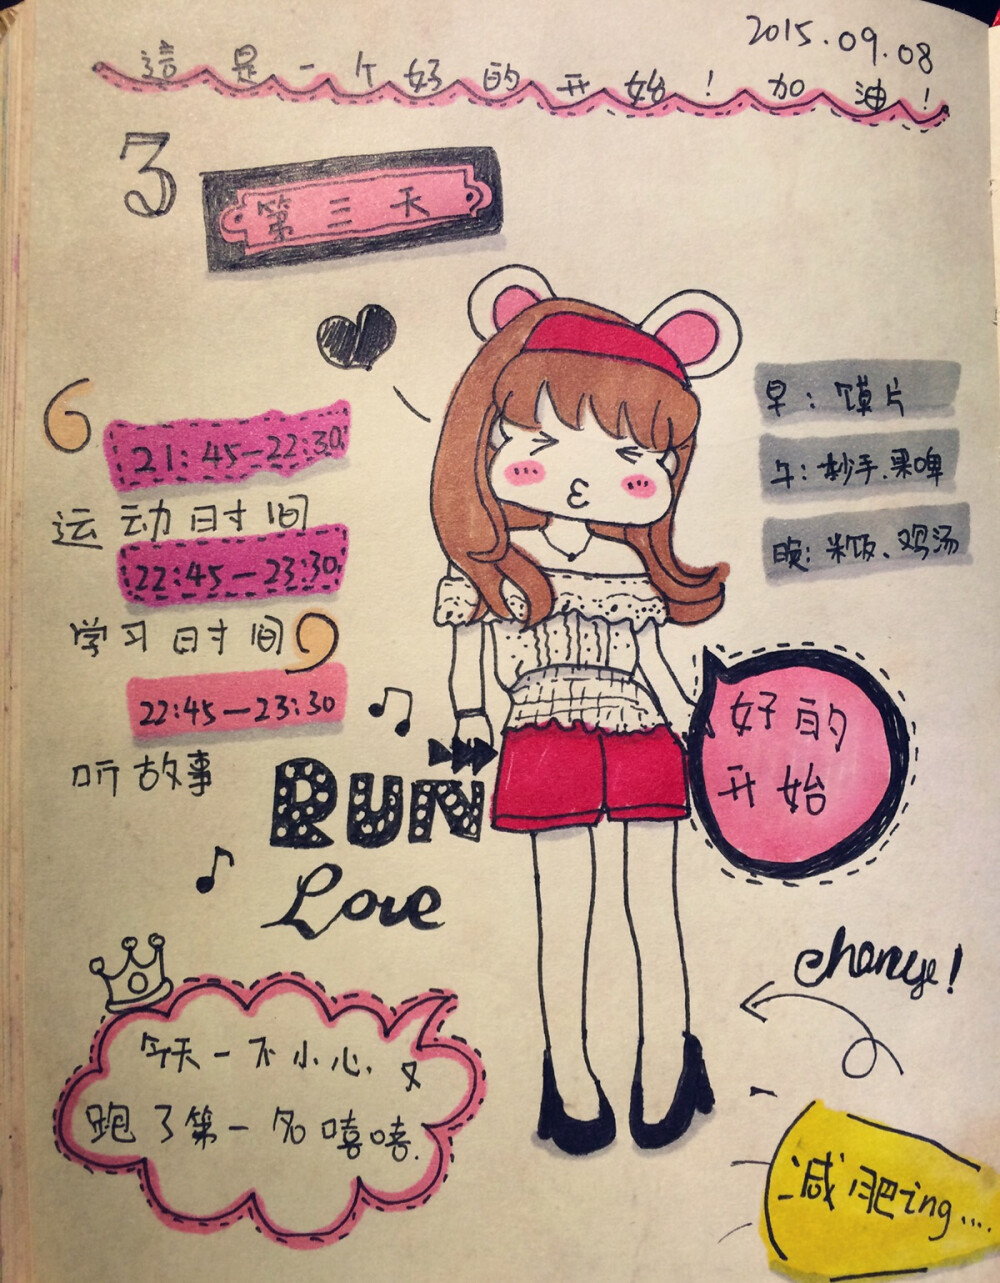 2015.09.08
這是一个好的开始！加油！
3
第三天
21:45—22:30
运动时间
22:45—23:30
学习时间
22:45—23:30
听故事
早：馍片
午：抄手、果啤
晚：米饭、鸡汤
RUN
Love
好的
开始
change!
今天一不小心，又
跑了第一名嘻嘻.
减肥ing....